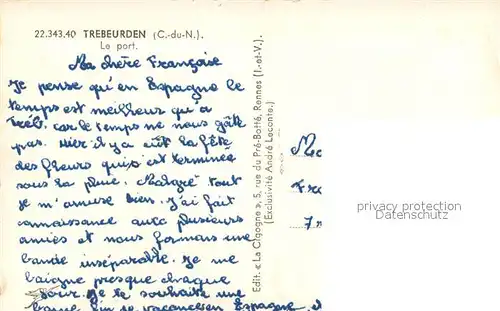 22.343.40 TREBEURDEN (C.-du-N.).
Le port.
Ma chère Françoise
Je pense qu'en Espagne le
temps est meilleur qu'a
Treb. car le temps ne nous gâte
pas. Hier il y a eût la fête
des fleurs qui s'est terminée
sous la pluie. Malgré tout
je m'amuse bien. J'ai fait
connaissance avec plusieurs
amies et nous formons une
bande inséparable. Je me
baigne presque chaque
jour. Je te souhaite une
bonne fin de vacances en Espagne et
Edit. « La Cigogne », 5, rue du Pré-Botté, Rennes (I.-et-V.).
(Exclusivité André Leconte.)
7
privacy protection